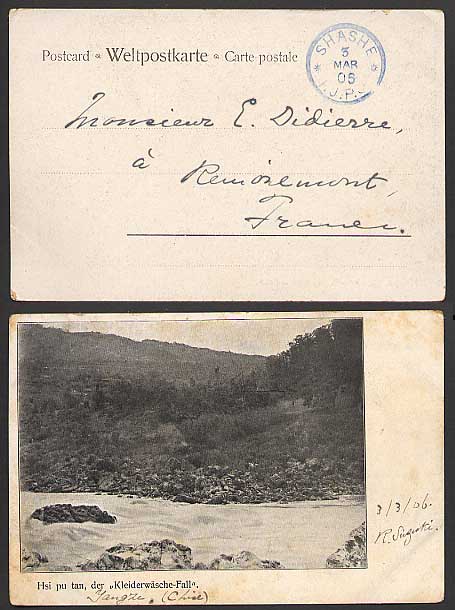 Postcard Weltpostkarte Carte postale
SHASHE
3
MAR
06
I.J.P.
Monsieur E. Didierre,
à
Remiremont,
France.
3/3/06.
K. Suzuki.
Hsi pu tan, der „Kleiderwäsche-Fall".
Yangze, (Chine)